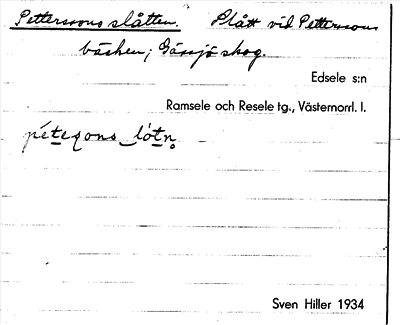 Petterssons slåtten. Slått vid Petterssons
bäcken; Gässjö skog.
Edsele s:n
Ramsele och Resele tg., Västernorrl. l.
Sven Hiller 1934